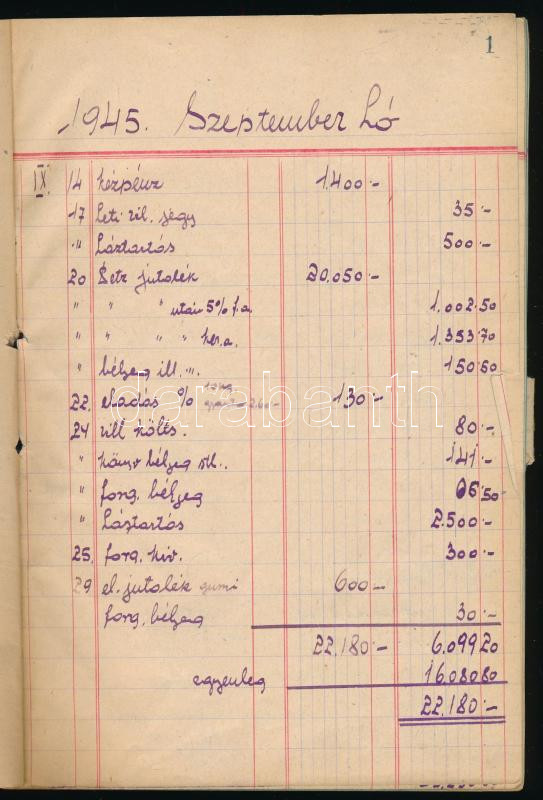 1
1945. Szeptember hó
IX. 14 kézpénz 1.400.-
17 Leti vil. jegy 35.-
" háztartás 500.-
20 Setz jutalék 20.050.-
" " " után 5% f.a. 1.002.50
" " " " ker.a. 1.353.70
" bélyeg ill. 150.60
22. eladás % 130.-
24 vill költs. 80.-
" könyv bélyeg stb.. 141.-
" forg. bélyeg 6.50
" háztartás 2.500.-
25. forg. kiv. 300.-
29 el. jutalék gumi 600.-
forg. bélyeg 30.-
22.180.- 6.099 20
egyenleg 16.080 80
22.180.-
darabanth